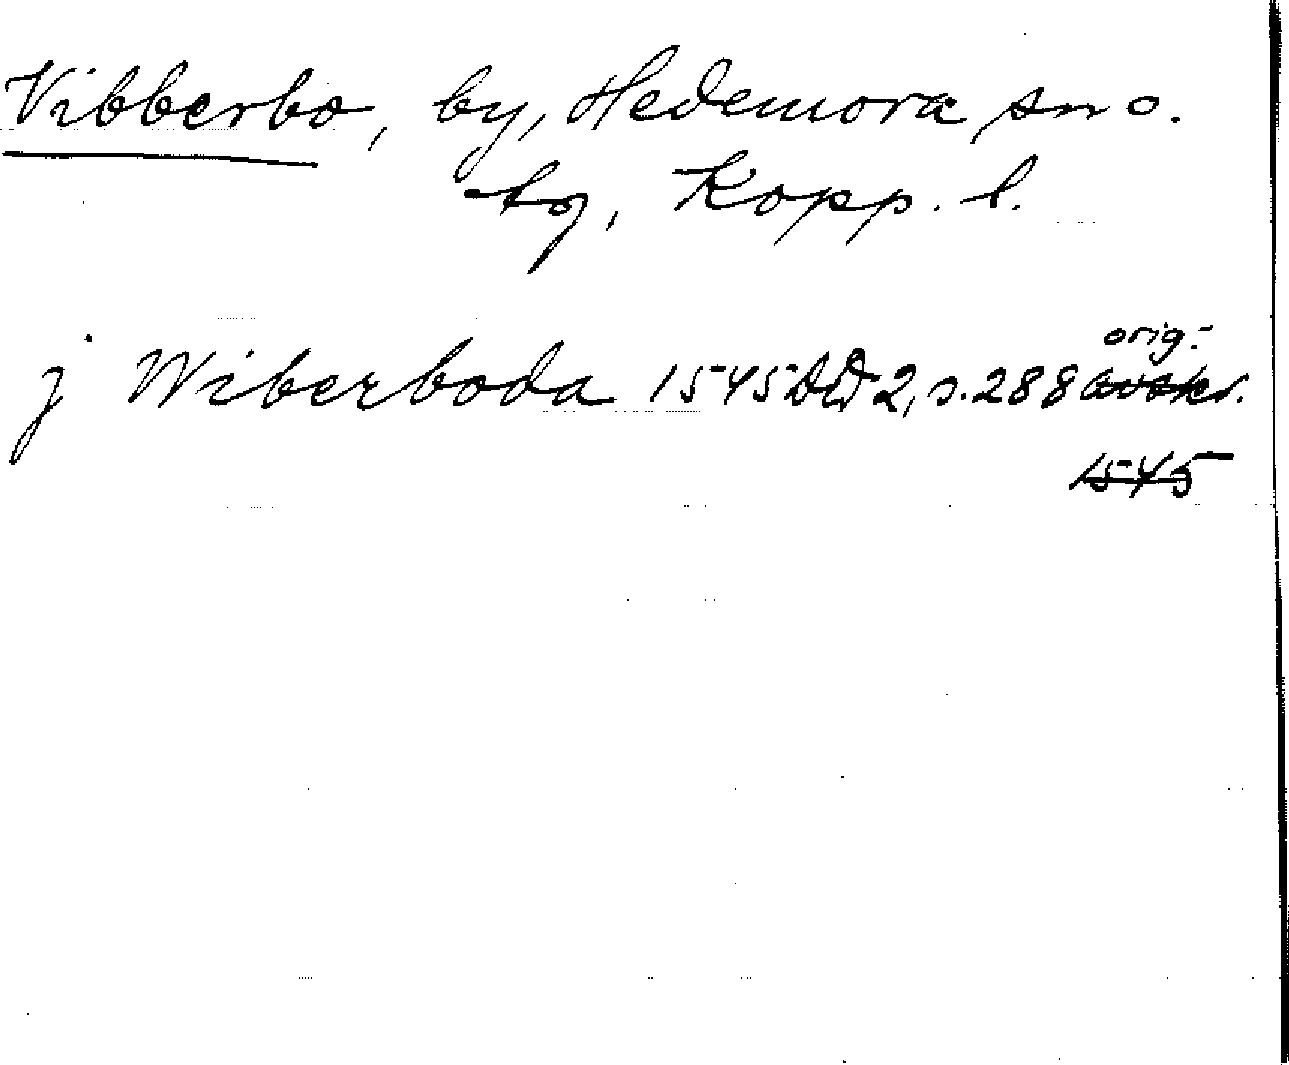 Vibberbo, by, Hedemora sn o.
tg, Kopp. l.
orig:
j Wiberboda 1545 DD 2, s. 288 avskr.
1545